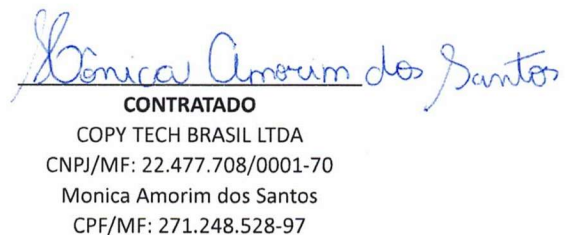 Mônica Amorim dos Santos
CONTRATADO
COPY TECH BRASIL LTDA
CNPJ/MF: 22.477.708/0001-70
Monica Amorim dos Santos
CPF/MF: 271.248.528-97